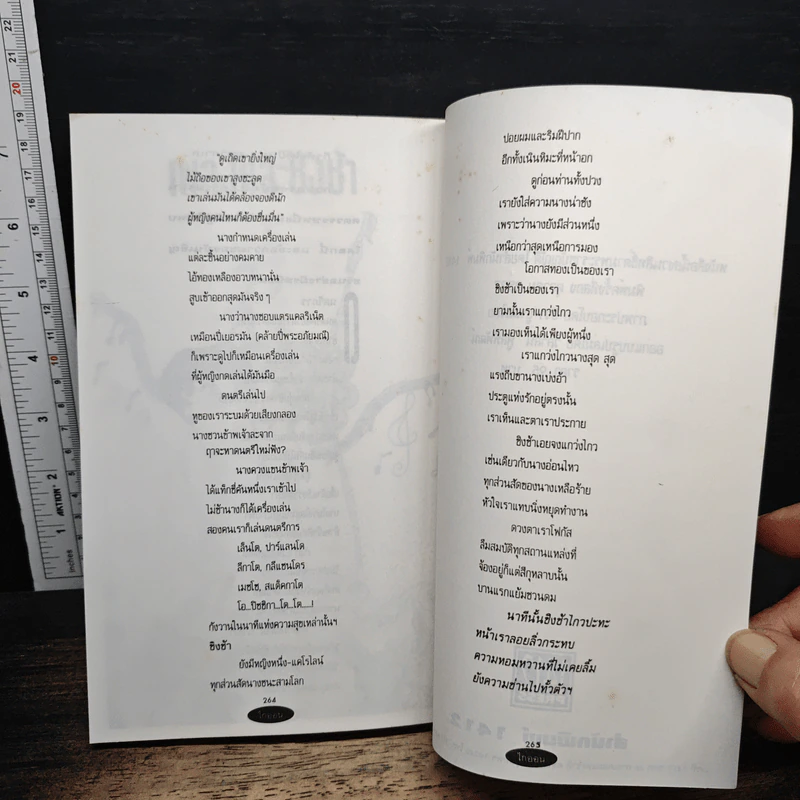 "ดูเถิดเขายิ่งใหญ่
ไม้ถือของเขาสูงชะลูด
เขาเล่นมันได้คล่องจองดีนัก
ผู้หญิงคนไหนก็ต้องชื่นมื่น"
นางกำหนดเครื่องเล่น
แต่ละชิ้นอย่างคมคาย
ไอ้ทองเหลืองอวบหนานั่น
สูบเข้าออกสุดมันจริง ๆ
นางว่านางชอบแตรแคลริเน็ต
เหมือนปี่เยอรมัน (คล้ายปี่พระอภัยมณี)
ก็เพราะดูไปก็เหมือนเครื่องเล่น
ที่ผู้หญิงกดเล่นได้มันมือ
ดนตรีเล่นไป
หูของเราระบมด้วยเสียงกลอง
นางชวนข้าพเจ้าละจาก
ฤาจะหาดนตรีใหม่ฟัง?
นางควงแขนข้าพเจ้า
ได้แท็กซี่คันหนึ่งเราเข้าไป
ไม่ช้านางก็ได้เครื่องเล่น
สองคนเราก็เล่นดนตรีการ
เล็นโต, ปาร์แลนโด
ลีกาโต, กลีแซนโดร
เมซโซ, สแต็คกาโต
โอ...ปิซซิกา...โต...โต.....!
กังวานในนาทีแห่งความสุขเหล่านั้นฯ
ชิงช้า
ยังมีหญิงหนึ่ง-แคโรไลน์
ทุกส่วนสัดนางชนะสามโลก
264
ไกอ่อน
ปอยผมและริมฝีปาก
อีกทั้งเนินหิมะที่หน้าอก
ดูก่อนท่านทั้งปวง
เรายังใส่ความนางน่าชัง
เพราะว่านางยังมีส่วนหนึ่ง
เหนือกว่าสุดเหนือการมอง
โอกาสทองเป็นของเรา
ชิงช้าเป็นของเรา
ยามนั้นเราแกว่งไกว
เรามองเห็นได้เพียงผู้หนึ่ง
เราแกว่งไกวนางสุด สุด
แรงถีบขานางเบ่งอ้า
ประตูแห่งรักอยู่ตรงนั้น
เราเห็นและตาเราประกาย
ชิงช้าเอยจงแกว่งไกว
เช่นเดียวกับนางอ่อนไหว
ทุกส่วนสัดของนางเหลือร้าย
หัวใจเราแทบนิ่งหยุดทำงาน
ดวงตาเราโฟกัส
ลืมสมบัติทุกสถานแหล่งที่
จ้องอยู่ก็แต่สีกุหลาบนั้น
บานแรกแย้มชวนดม
นาทีนั้นชิงช้าไกวปะทะ
หน้าเราลอยลิ่วกระทบ
ความหอมหวานที่ไม่เคยลิ้ม
ยังความซ่านไปทั้วตัวฯ
265
ไกอ่อน